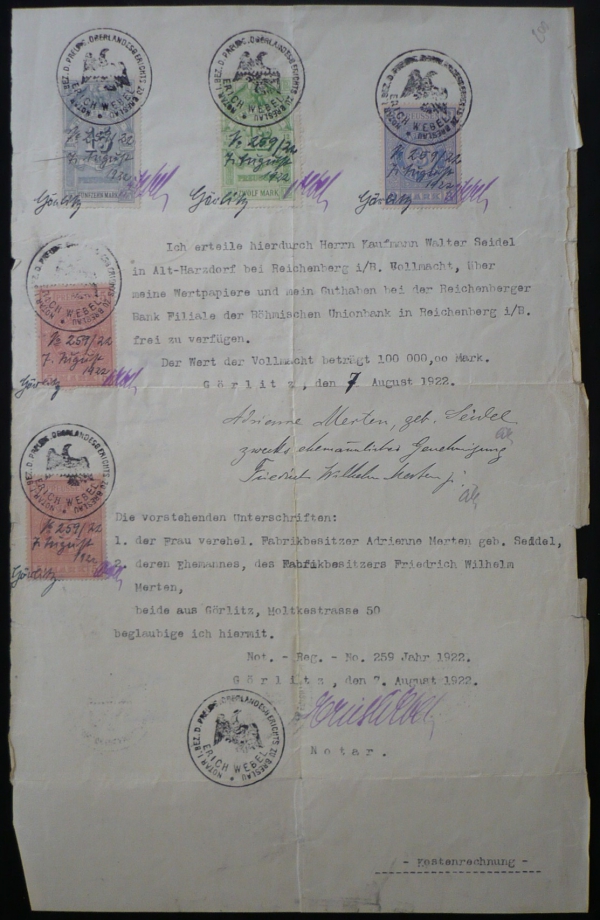 200
NOTAR I. BEZ. D. PREUSS. OBERLANDESGERICHTS ZU BRESLAU
ERICH WEBEL
NOTAR I. BEZ. D. PREUSS. OBERLANDESGERICHTS ZU BRESLAU
ERICH WEBEL
NOTAR I. BEZ. D. PREUSS. OBERLANDESGERICHTS ZU BRESLAU
ERICH WEBEL
No 259/22
7. August
1922
FÜNFZEHN MARK
Görlitz
No 259/22
7. August
1922
ZWÖLF MARK
Görlitz
No 259/22
7. August
1922
Görlitz
Ich erteile hierdurch Herrn Kaufmann Walter Seidel
in Alt-Harzdorf bei Reichenberg i/B. Vollmacht, über
meine Wertpapiere und mein Guthaben bei der Reichenberger
Bank Filiale der Böhmischen Unionbank in Reichenberg i/B.
frei zu verfügen.
Der Wert der Vollmacht beträgt 100 000,oo Mark.
Görlitz, den 7. August 1922.
NOTAR I. BEZ. D. PREUSS. OBERLANDESGERICHTS ZU BRESLAU
ERICH WEBEL
No 259/22
7. August
1922
Görlitz
Adrienne Merten, geb. Seidel
zwecks ehemännlicher Genehmigung
Friedrich Wilhelm Merten jr.
NOTAR I. BEZ. D. PREUSS. OBERLANDESGERICHTS ZU BRESLAU
ERICH WEBEL
No 259/22
7. August
1922
Görlitz
Die vorstehenden Unterschriften:
1. der Frau verehel. Fabrikbesitzer Adrienne Merten geb. Seidel,
2. deren Ehemannes, des Fabrikbesitzers Friedrich Wilhelm
Merten,
beide aus Görlitz, Moltkestrasse 50
beglaubige ich hiermit.
Not. - Reg. - No. 259 Jahr 1922.
Görlitz, den 7. August 1922.
Erich Webel
Notar.
NOTAR I. BEZ. D. PREUSS. OBERLANDESGERICHTS ZU BRESLAU
ERICH WEBEL
- Kostenrechnung -